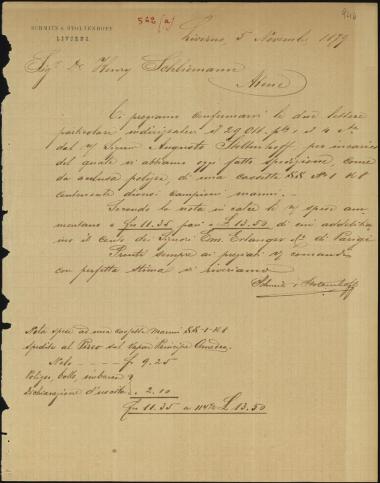 SCHMITZ & STOLTENHOFF
LIVORNO.
562 (a)
Livorno 5 Novembre 1879
Sigr. Dr. Henry Schliemann
Atene
Ci pregiamo confermarvi le due lettere
particolari indirizzatevi il 29 Ott. pto e il 4 
dal Signor Augusto Stoltenhoff per incarico
del quale vi abbiamo oggi fatto spedizione, come
da acclusa polizza, di una cassetta No 1 
contenente diversi campioni marmi.
Secondo la nota in calce le spese am-
montano a fr 11.35 pari a £ 13.50 di cui addebitia-
mo il conto dei Signori Em. Erlanger & C. di Parigi
Pronti sempre ai pregiati comandi
con perfetta stima vi riveriamo
Schmitz & Stoltenhoff
Nota spese ad una cassetta marmi
spedita al Pireo col vapor Principe Amedeo
Nolo fr 9.25
Polizza, bollo, imbarco
dichiarazione d'uscita 2.10
fr 11.35 a £ 13.50